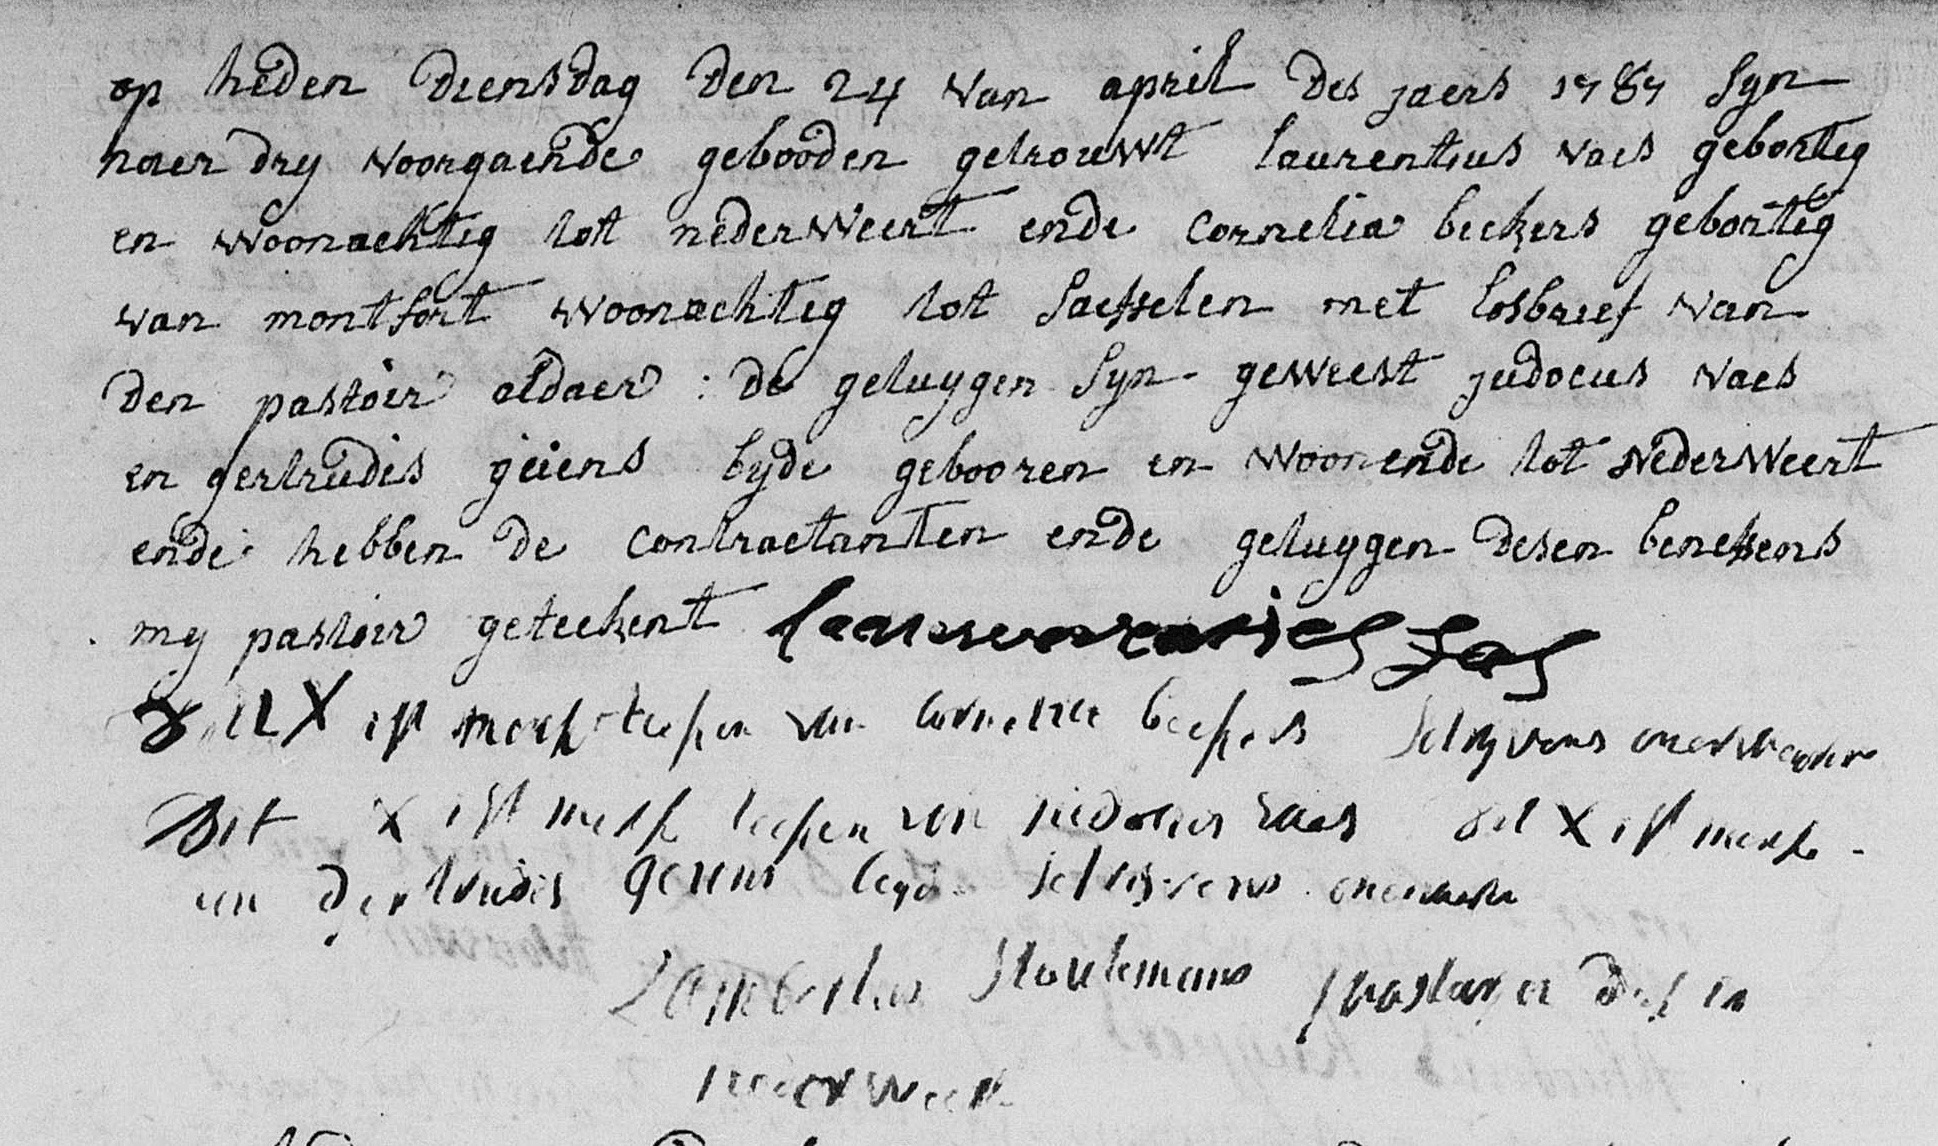 op heden diensdag den 24 van april des jaers 1787 syn
naer dry voorgaende gebooden getrouwt laurentius vaes geboortig
en woonachtig tot nederweert ende cornelia beckers geboortig
van montfort woonachtig tot saesselen met losbrief van
den pastoir aldaer : de getuygen syn geweest judocus vaes
en gertrudis geiens byde gebooren en woonende tot nederweert
ende hebben de contractanten ende getuygen desen beneffens
my pastoir geteekent
dit X ist merk teeken van cornelia beckers schryvens onervaren
Dit X ist merk teeken van judocus vaes dit X ist merk
van gertrudis geiens beyde schryvens onervaren
Lambertus Houtemans pastoir in
nederweert